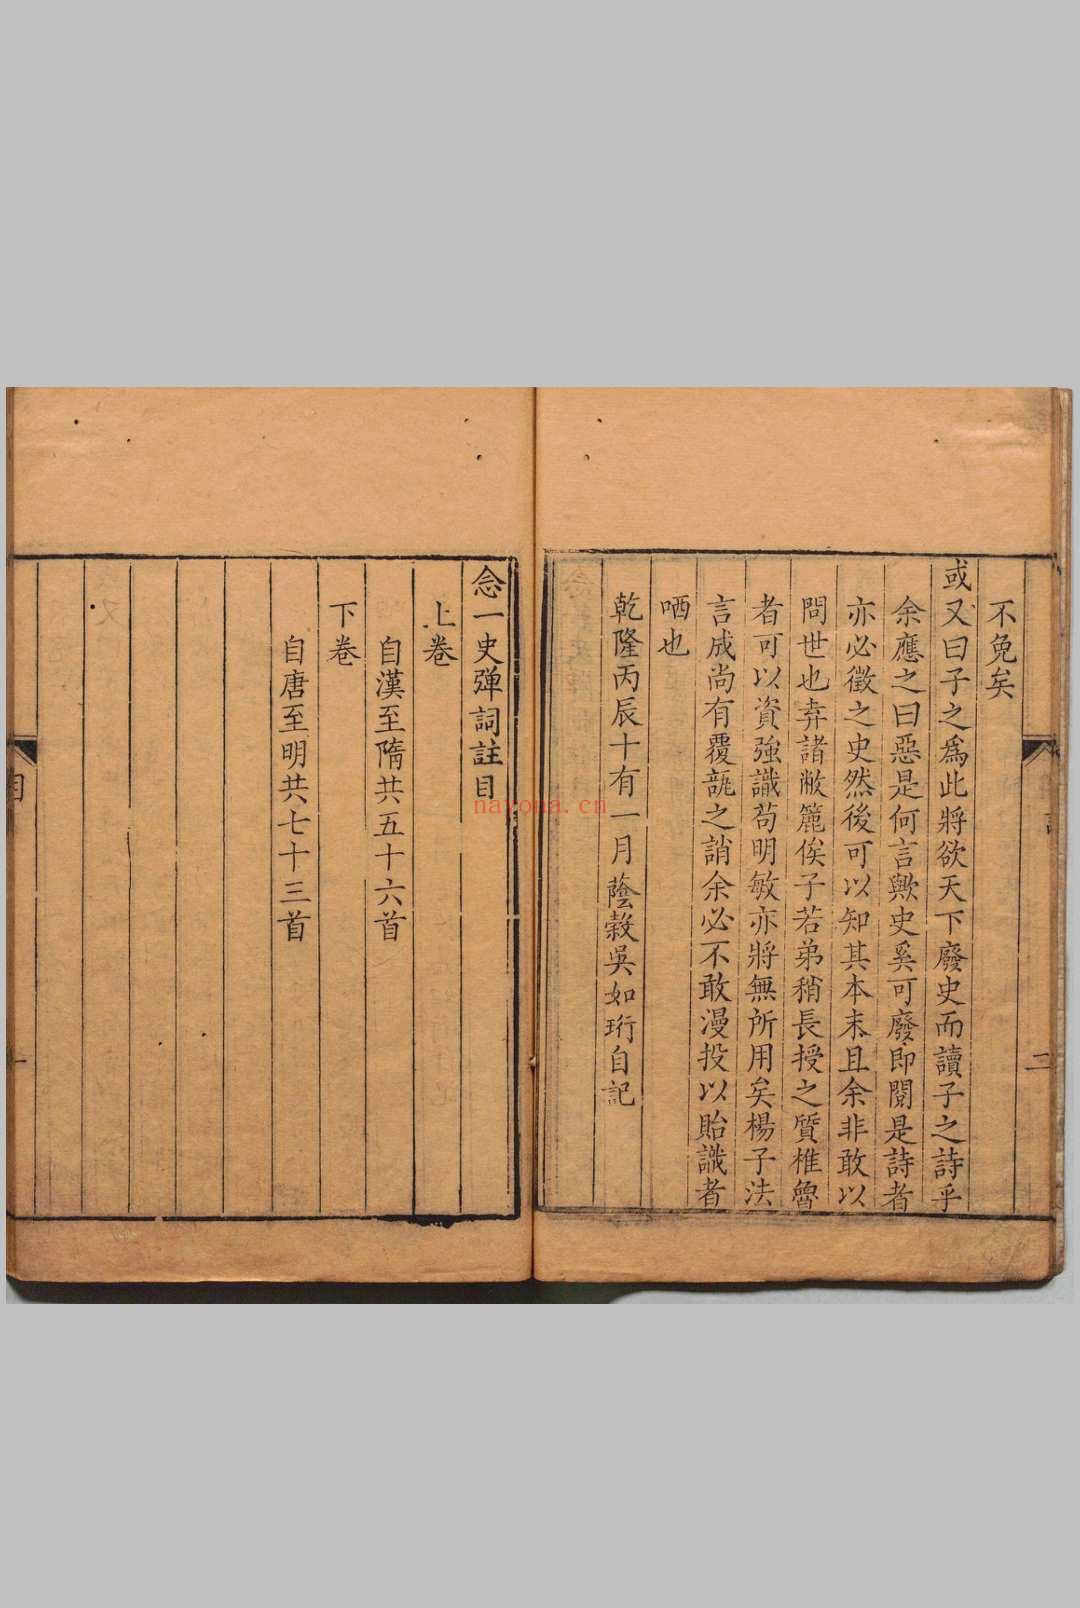 不免矣
或又曰子之爲此將欲天下廢史而讀子之詩乎
余應之曰惡是何言歟史奚可廢即閱是詩者
亦必徵之史然後可以知其本末且余非敢以
問世也弆諸敝簏俟子若弟稍長授之質椎魯
者可以資強識苟明敏亦將無所用矣楊子法
言成尚有覆瓿之誚余必不敢漫投以貽識者
哂也
乾隆丙辰十有一月蔭穀吳如珩自記
二
念一史彈詞註目
上卷
自漢至隋共五十六首
下卷
自唐至明共七十三首
目
一
nayona.cn